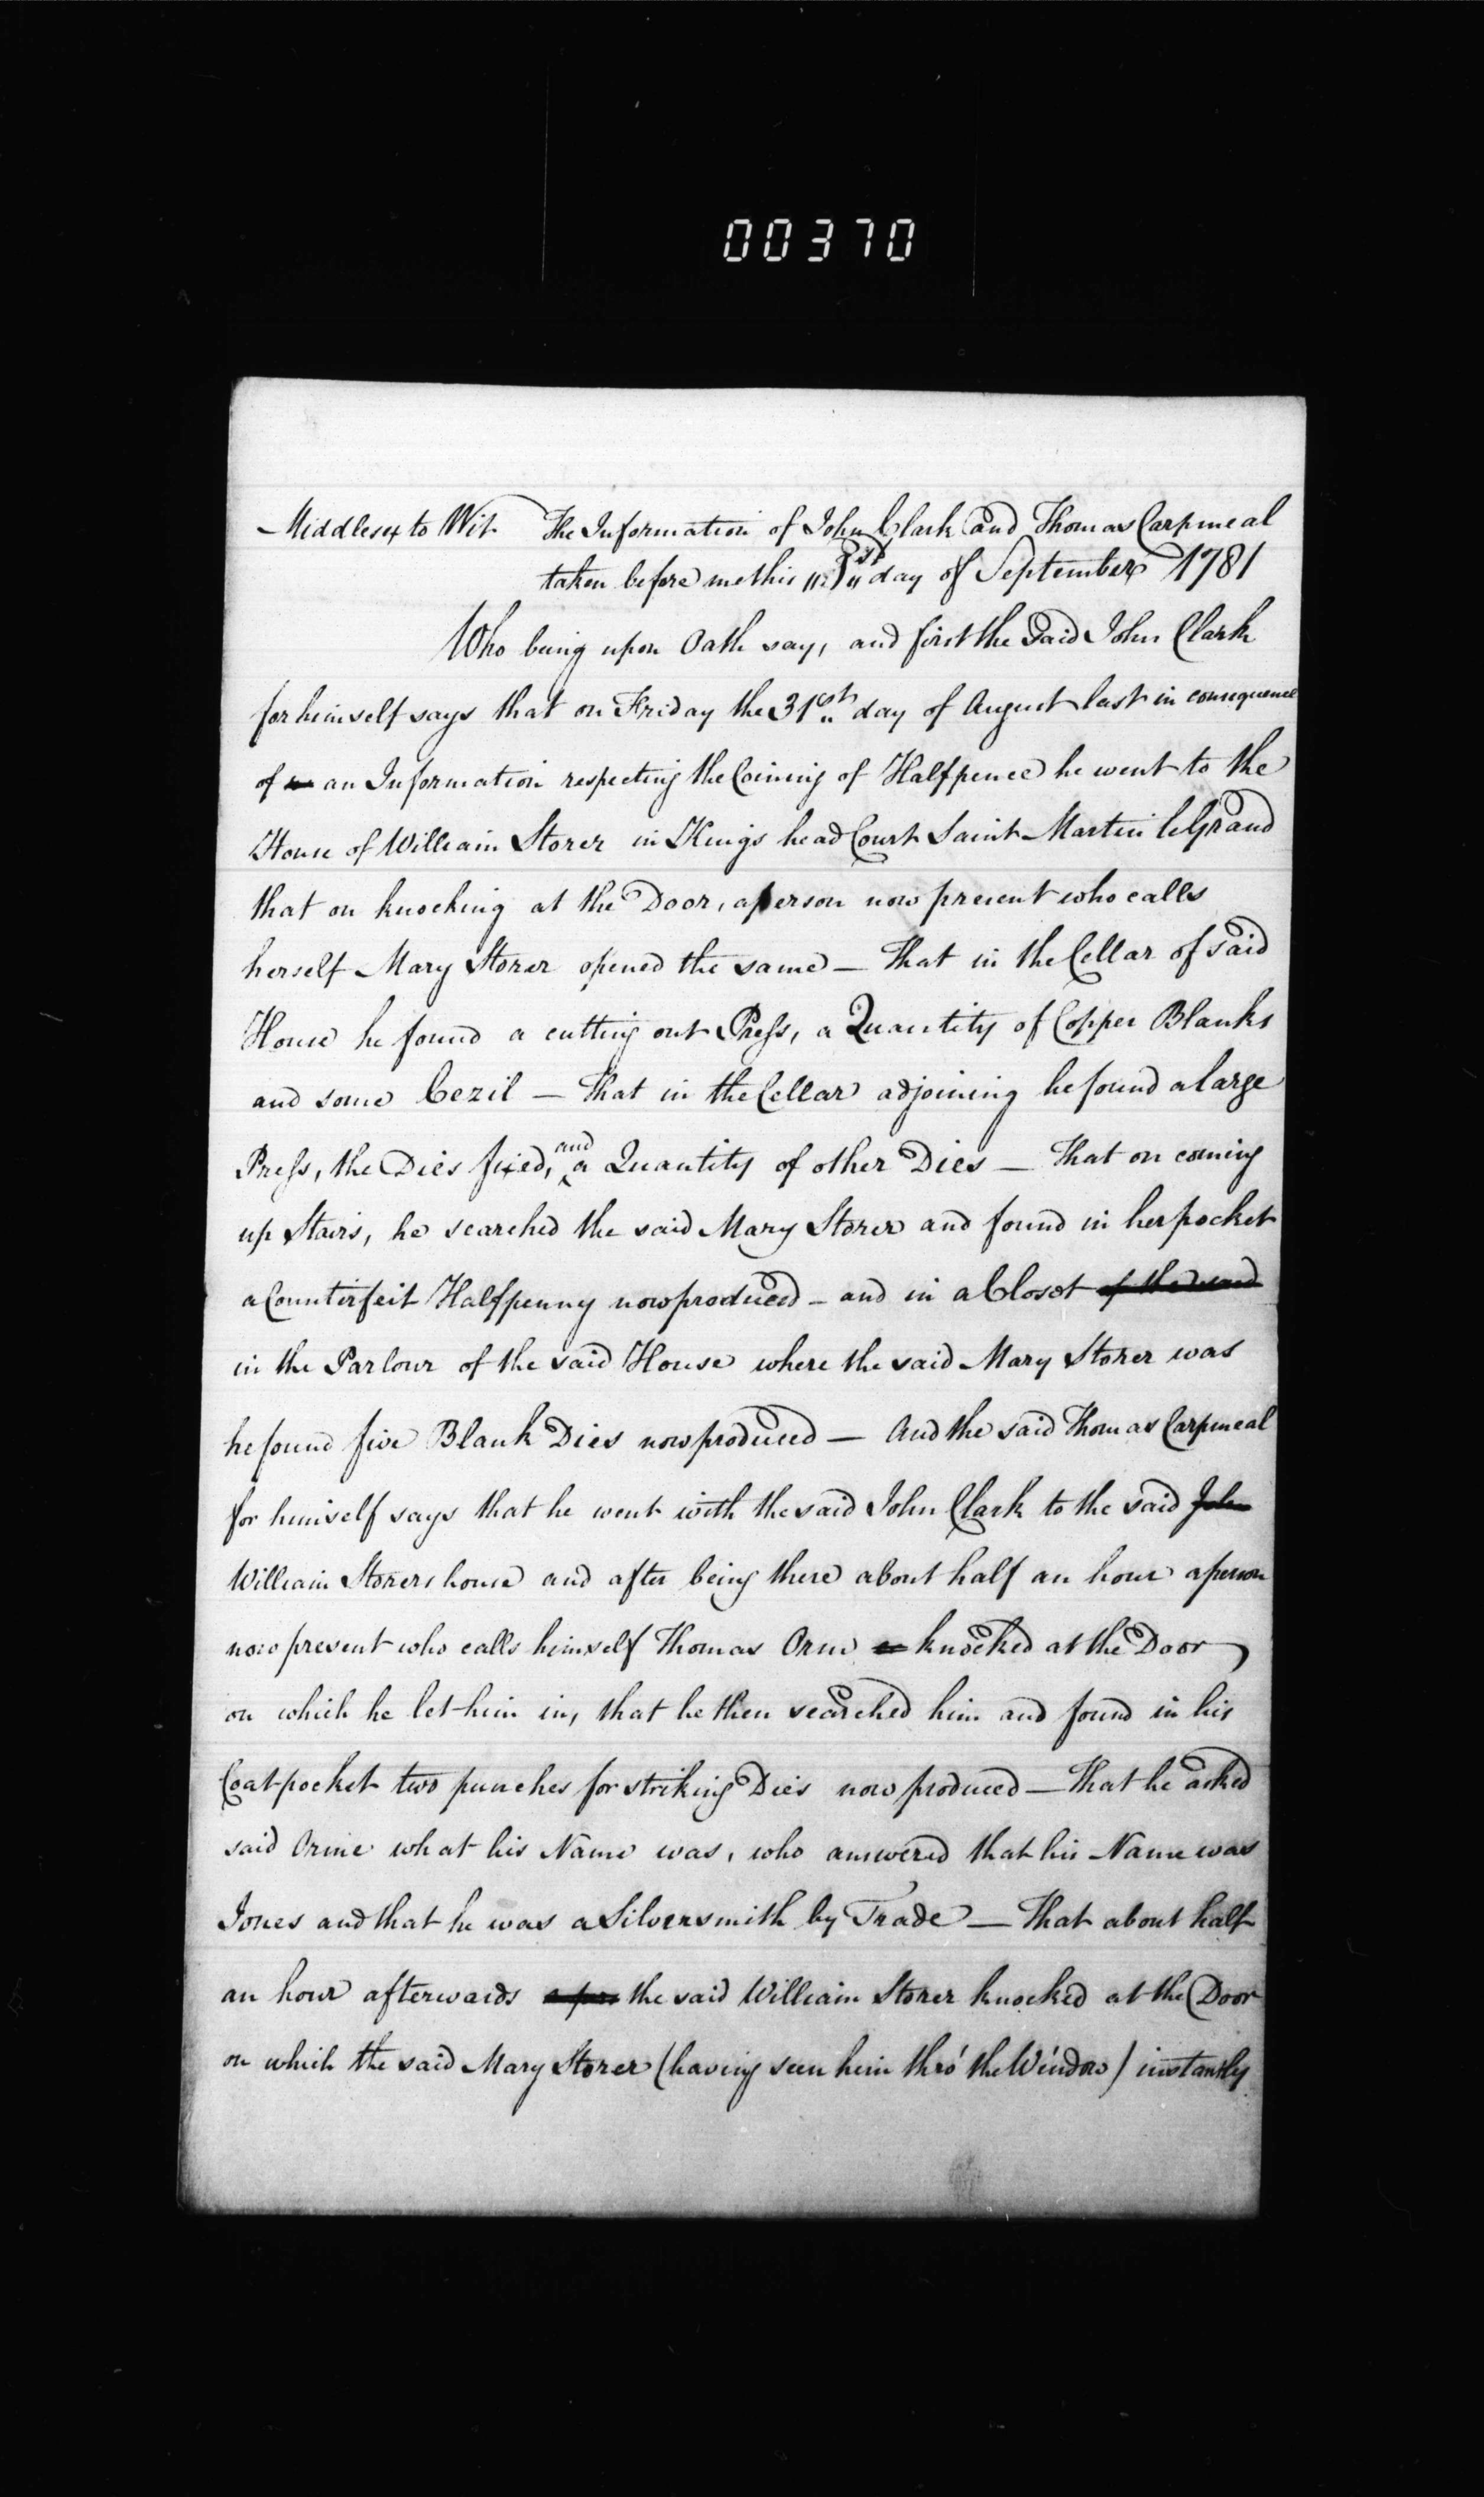 00370
Middlesex to Wit The Information of John Clark and Thomas Carpmeal
taken before me this day of September 1781
Who being upon Oath say, and first the Said John Clark
for himself says that on Friday the 31st day of August last in consequence
of an Information respecting the Coining of Halfpence he went to the
House of William Storer in Kings head Court Saint Martin le Grand
that on knocking at the Door, a person now present who calls
herself Mary Storer opened the same — That in the Cellar of said
House he found a cutting out Press, a Quantity of Copper Blanks
and some Cezil — That in the Cellar adjoining he found a large
Press, the Dies fixed, and a Quantity of other Dies — That on coming
up Stairs, he searched the said Mary Storer and found in her pocket
a Counterfeit Halfpenny now produced — and in a Closet of the said
in the Parlour of the said House where the said Mary Storer was
he found five Blank Dies now produced — And the said Thomas Carpmeal
for himself says that he went with the said John Clark to the said John
William Storers house and after being there about half an hour a person
now present who calls himself Thomas Orm knocked at the Door
on which he let him in, that he then searched him and found in his
Coat pocket two punches for striking Dies now produced — That he asked
said Orme what his Name was, who answered that his Name was
Jones and that he was a Silversmith by Trade — That about half
an hour afterwards a per the said William Storer knocked at the Door
on which the said Mary Storer (having seen him thro' the Window) instantly